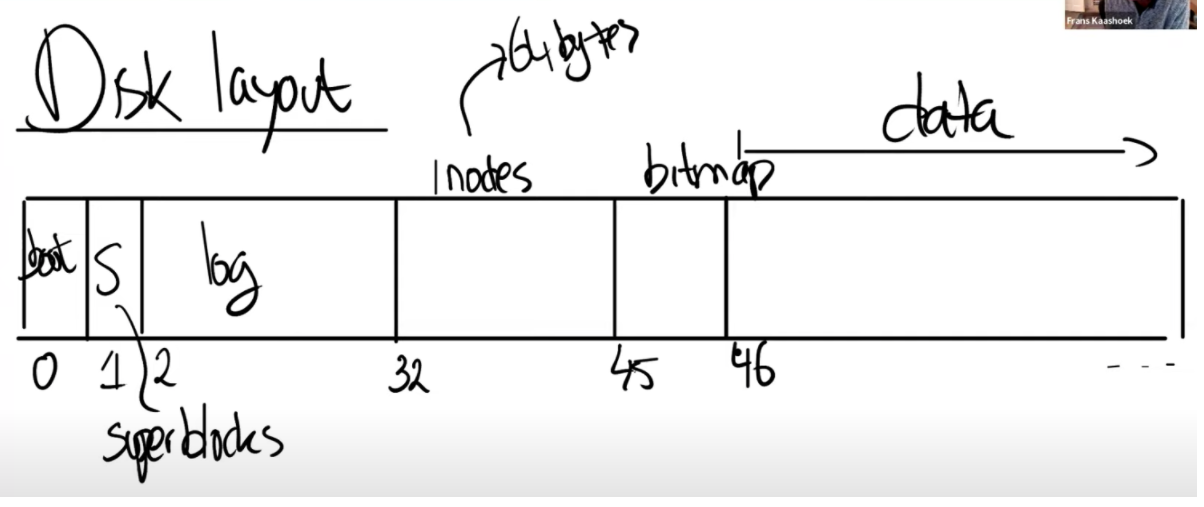 Frans Kaashoek
Disk layout
→64 bytes
data
Inodes
bitmap
boot
S
log
0
1
2
32
45
46
- - - -
superblocks